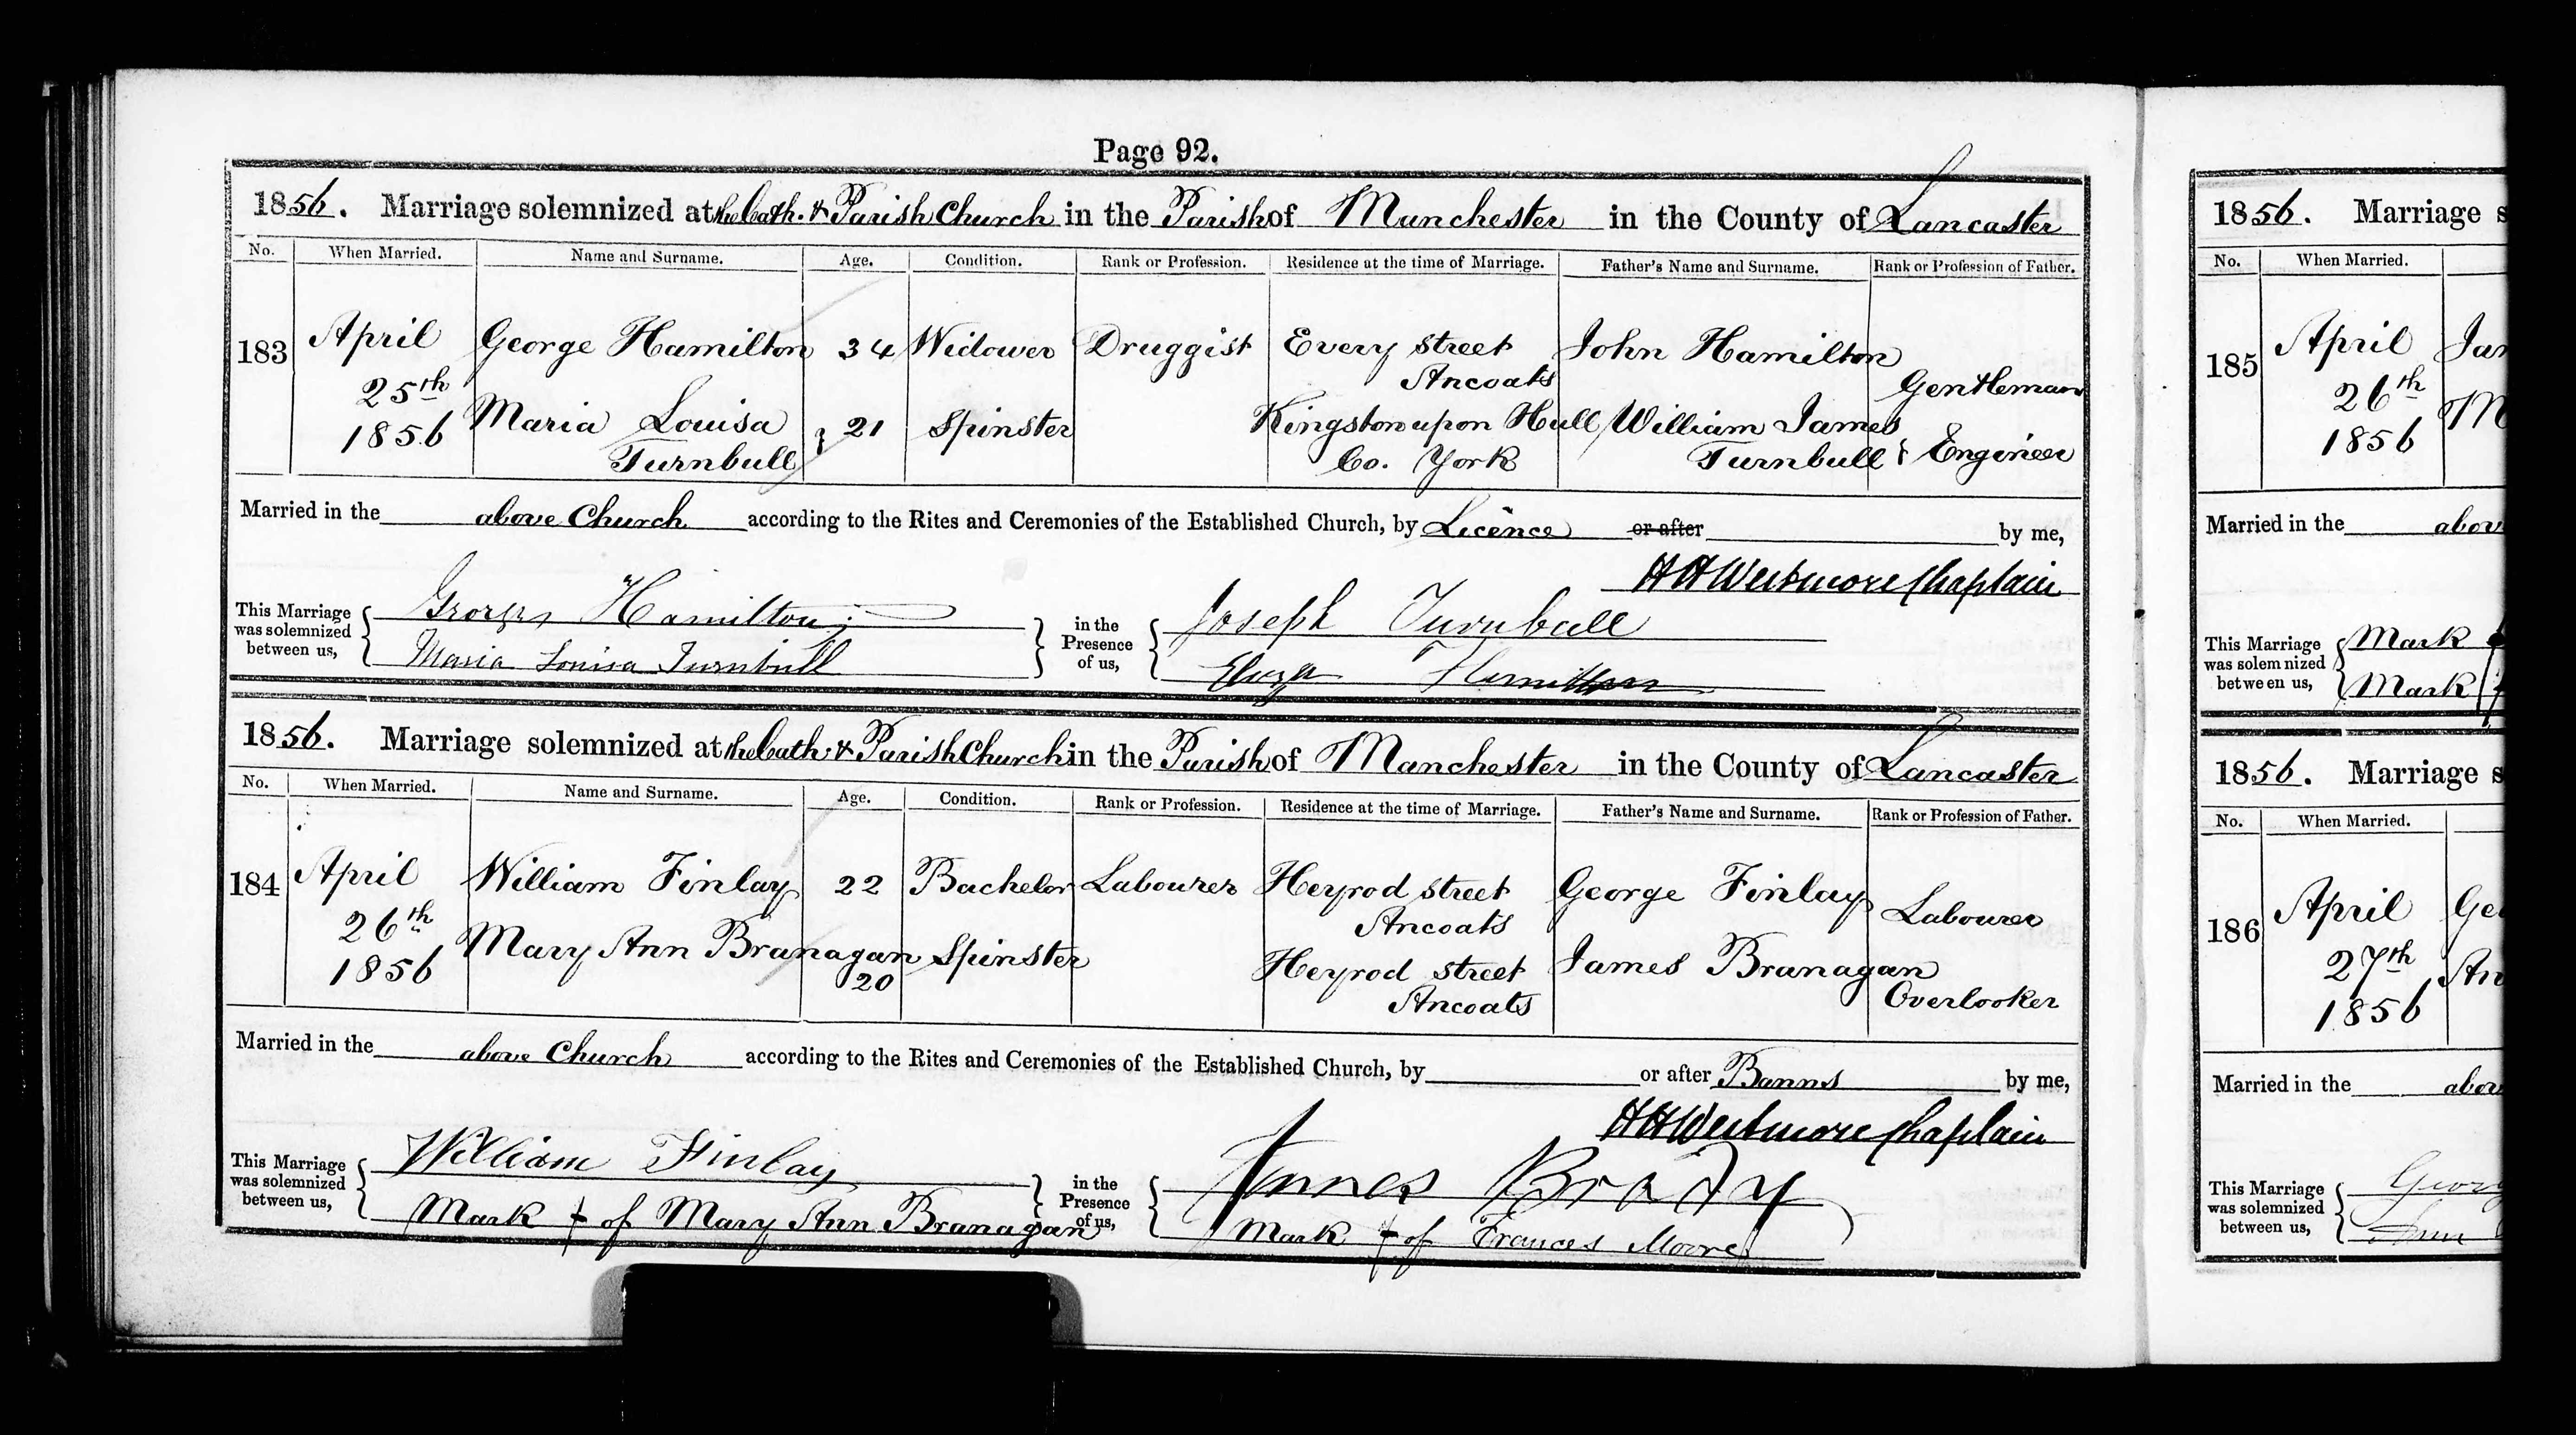 Page 92.
1856. Marriage solemnized at the Cath. & Parish Church in the Parish of Manchester in the County of Lancaster
No. When Married. Name and Surname. Age. Condition. Rank or Profession. Residence at the time of Marriage. Father's Name and Surname. Rank or Profession of Father.
183 April George Hamilton 34 Widower Druggist Every street John Hamilton
25th Ancoats Gentleman
1856 Maria Louisa } 21 Spinster Kingston upon Hull William James
Turnbull Co. York Turnbull } Engineer
Married in the above Church according to the Rites and Ceremonies of the Established Church, by Licence or after by me,
H H Westmore Chaplain
This Marriage was solemnized between us, { George Hamilton } in the Presence of us, { Joseph Turnbull
Maria Louisa Turnbull Eliza Hamilton
1856. Marriage solemnized at the Cath. & Parish Church in the Parish of Manchester in the County of Lancaster
No. When Married. Name and Surname. Age. Condition. Rank or Profession. Residence at the time of Marriage. Father's Name and Surname. Rank or Profession of Father.
184 April William Finlay 22 Bachelor Labourer Heyrod street George Finlay
26th Ancoats Labourer
1856 Mary Ann Branagan 20 Spinster Heyrod street James Branagan
Ancoats Overlooker
Married in the above Church according to the Rites and Ceremonies of the Established Church, by or after Banns by me,
H H Westmore Chaplain
This Marriage was solemnized between us, { William Finlay } in the Presence of us, { James Brady
Mark + of Mary Ann Branagan Mark + of Frances Moore
1856. Marriage s
No. When Married.
185 April Jam
26th
1856 M
Married in the abov
This Marriage was solemnized between us, { Mark
Mark
1856. Marriage s
No. When Married.
186 April Geo
27th An
1856
Married in the abov
This Marriage was solemnized between us, { Georg